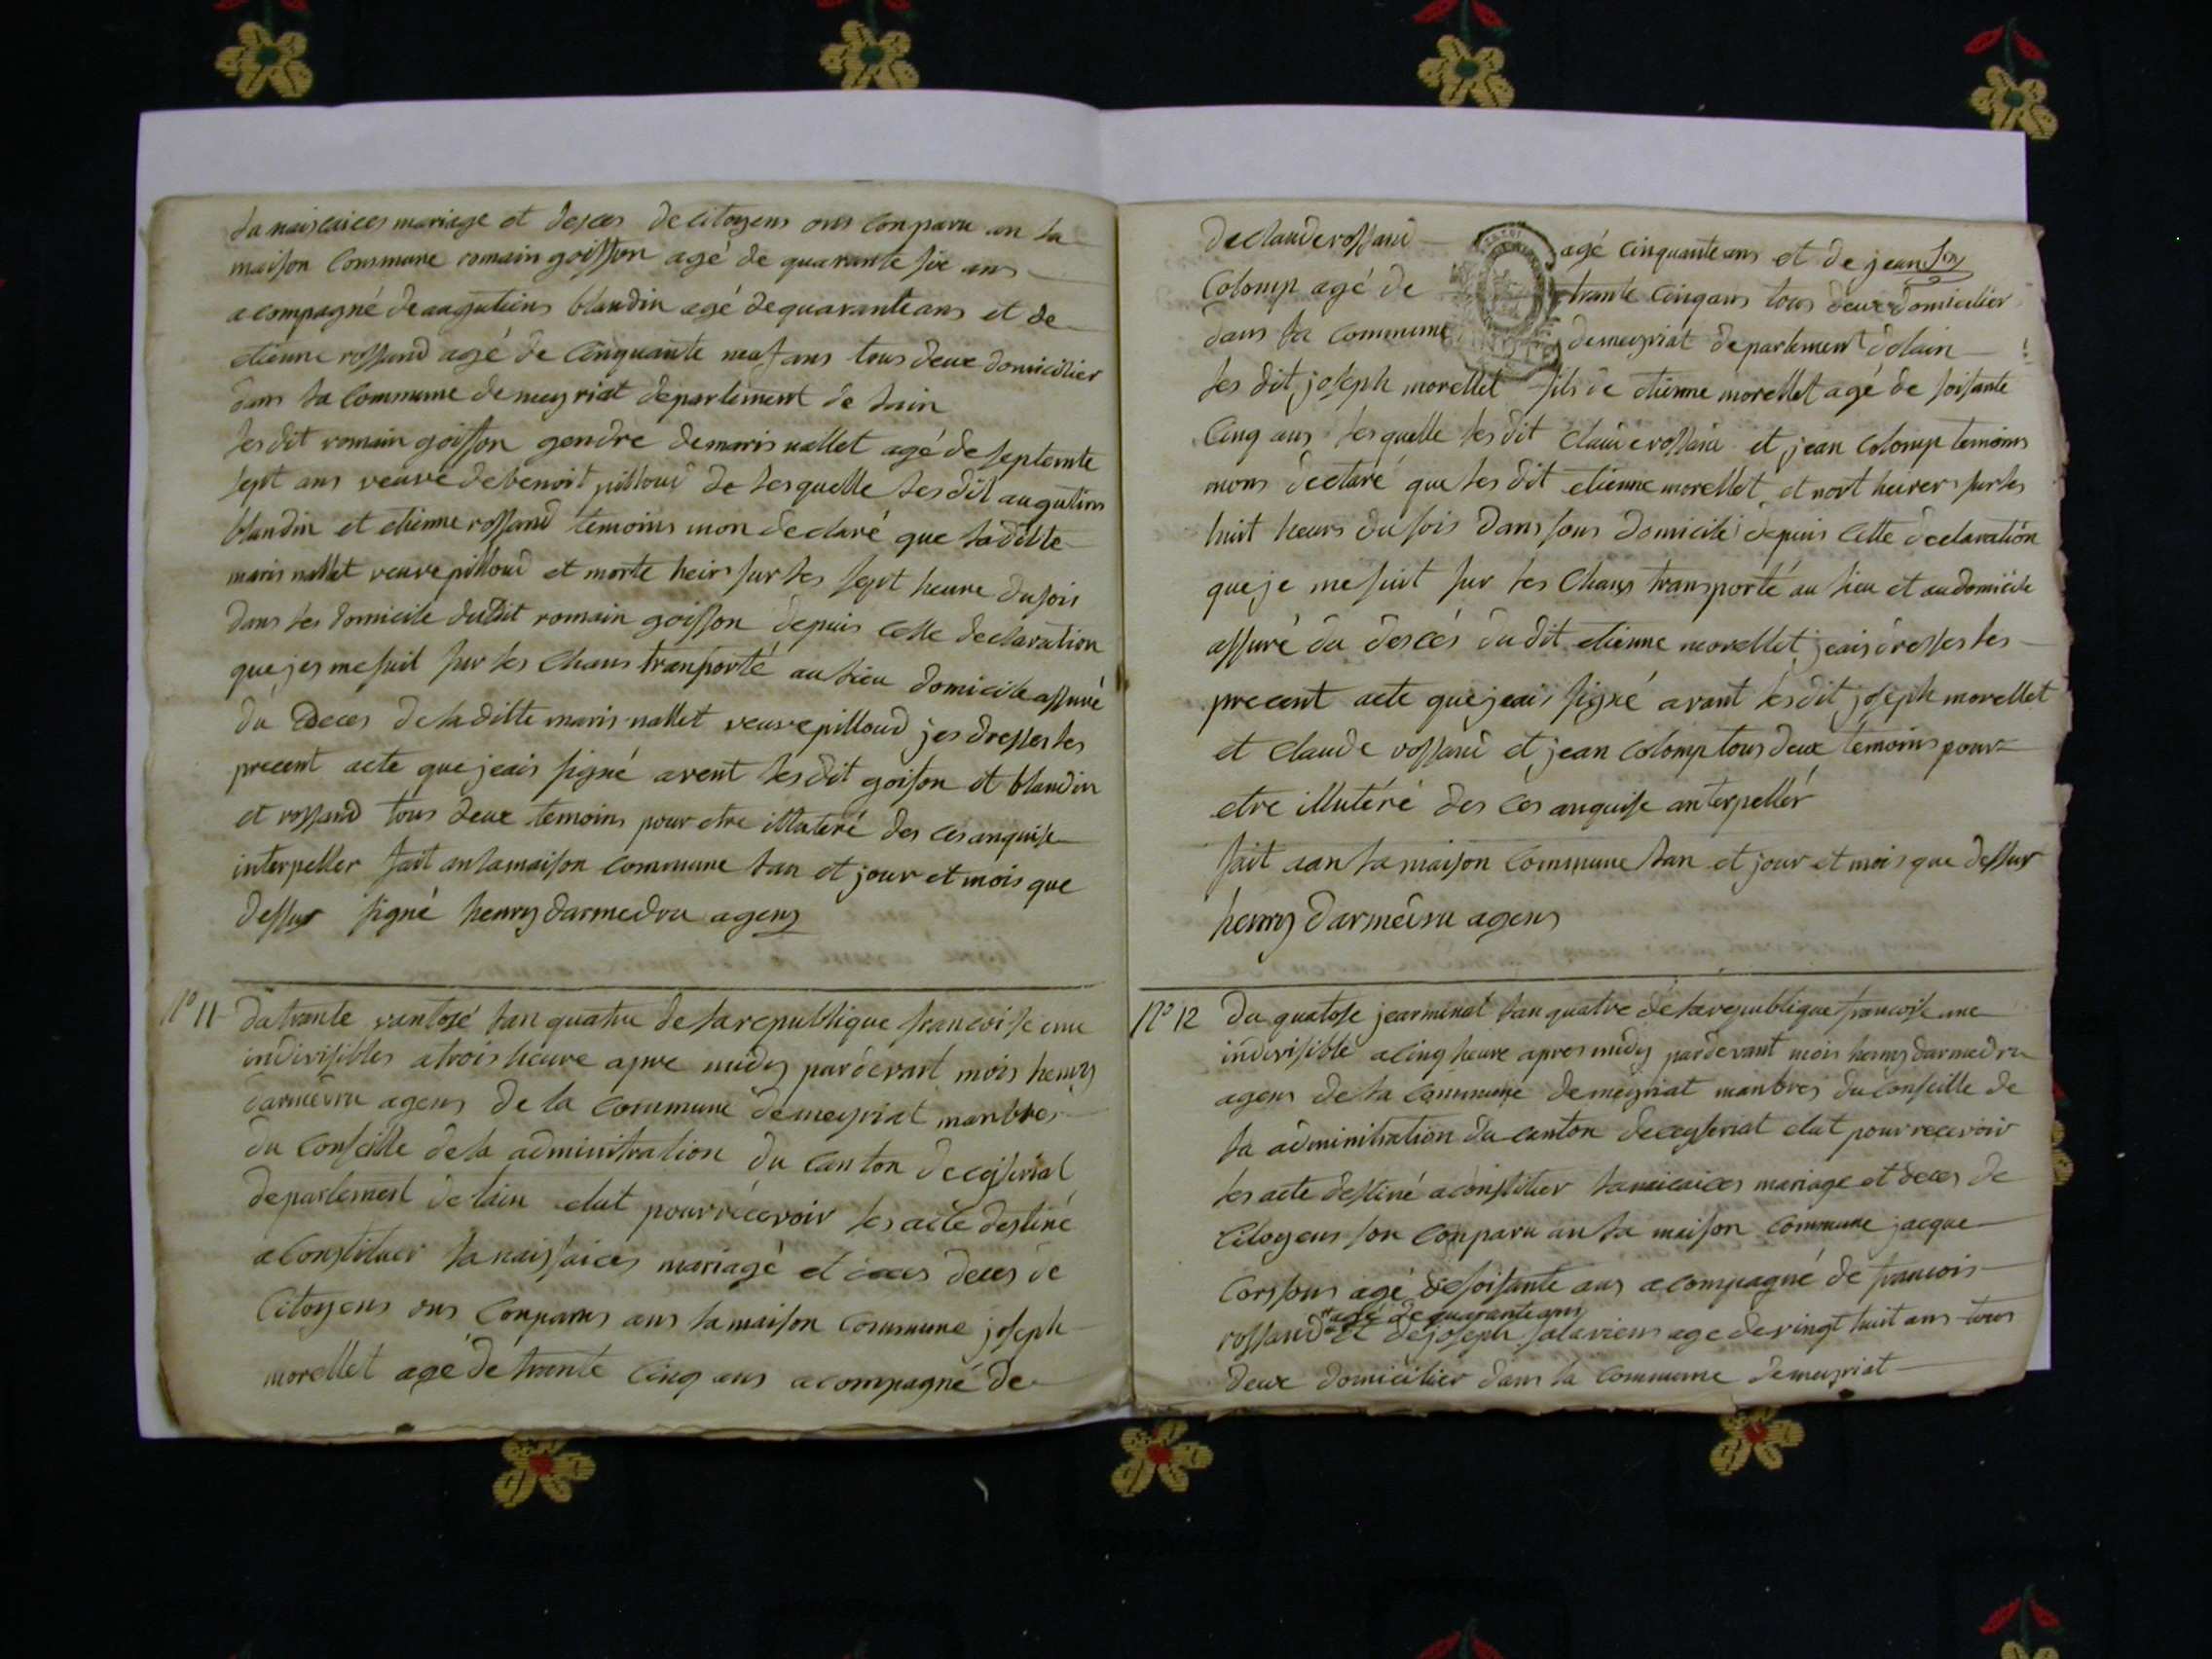 la naiscaices mariage et desces de citoyens ons conparu an la
maison commune romain goisson agé de quarante six ans
acompagné de augutiens blandin agé de quarante ans et de
etienne rossand agé de cinquante neuf ans tous deux domicilier
dans la commune de meyriat departement de lain
les dit romain goisson gendre de maris nallet agé de septente
sept ans veuve de benoit pilloud de lesquelle les dit augutins
blandin et etienne rossand temoins mon declaré que la ditte
maris nallet veuve pilloud et morte heirs sur les sept heure du sois
dans les domicile dudit romain goisson depuis cette declaration
que jes me suit sur les chans tranporté au lieu domicile assuré
du deces de la ditte maris nallet veuve pilloud jes dresses les
precent acte que jeais signé avent les dit goison et blandin
et rossand tous deux temoins pour etre illuteré des ces anquise
interpeller fait an la maison commune lan et jour et mois que
dessus signé henry darmedru agens
No 11 du trante vantosé lan quatru de la republique francoise une
indivisibles a trois heure apre midy pardevant mois henry
darmedru agens de la commune de meyriat manbres
du conseille de la administration du canton de ceyseriat
departement de lain elut pour récevoir les acte destiné
a constituer la naissaices mariagé et deces de
citoyens ons conparus ans la maison commune joseph
morellet agé de trante cinq ans acompagné de
de claude rossand agé cinquante ans et de jean
colomp agé de trante cinq ans tous deux domicilier
dans la commune de meyriat departement delain
les dit joseph morellet fils de etienne morellet agé de soisante
cinq ans lesquelle les dit claude rossand et jean colomp temoins
mons declaré que les dit etienne morellet et mort heirer sur les
huit heurs du sois dans sons domicile depuis cette declaration
que je me suit sur les chans transporté au lieu et au domicile
assuré du desces du dit etienne morellet jeais dresses les
precent acte que jeais signé avant les dit joseph morellet
et claude rossand et jean colomp tous deux temoins pour
etre illutéré des ces anquise anterpellér
fait aan la maison commune lan et jour et mois que dessus
henry darmedru agens
No 12 du quatose jearminal lan quatre de la republique francoise une
indivisible a cinq heure apres midy pardevant mois henry darmedru
agens de la commune de meyriat manbres du conseille de
la adminitration du canton de ceyseriat elut pour recevoir
les acte destiné a constituer la naicaices mariage et deces de
citoyens son conparu an la maison commune jacque
corssous agé de soisante ans acompagné de francois
agé de quarante ans
rossand et de joseph salaviens age de vingt huit ans tous
deux domicilier dans la commune de meyriat